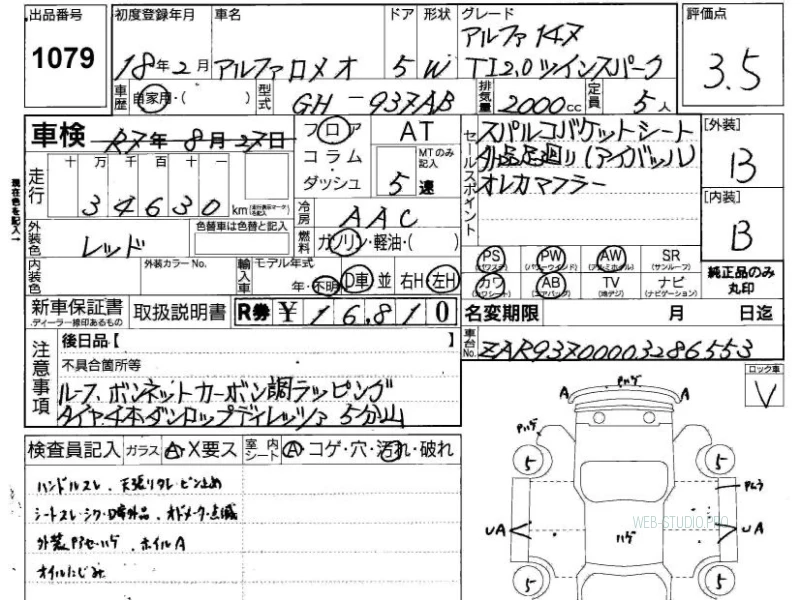 出品番号 1079
初度登録年月 18年2月
車名 アルファロメオ
ドア 5
形状 W
グレード アルファ147
TI 2.0 ツインスパーク
評価点 3.5
車歴 自家用・( )
型式 GH-937AB
排気量 2000cc
定員 5人
車検 R7年8月27日
フロア
コラム・
ダッシュ
AT
MTのみ記入
5速
セールスポイント
スパルコバケットシート
外品足廻り(アイバッハ)
オレカマフラー
[外装] B
[内装] B
現在色を記入→
走行 十万千百十一
34630 km
(走行表示マークを記入)
冷房 AAC
外装色 レッド
色替車は色替と記入
燃料 ガソリン・軽油・( )
内装色
外装カラーNo.
輸入車 モデル年式 年・不明
D車 並
右H・左H
PS (パワステ)
PW (パワーウインド)
AW (アルミホイル)
SR (サンルーフ)
カワ (カワシート)
AB (エアバック)
TV (地デジ)
ナビ (ナビゲーション)
純正品のみ丸印
新車保証書
ディーラー線印あるもの
取扱説明書
R券 ¥16,810
名変期限 月 日迄
注意事項
後日品【 】
不具合箇所等
ルーフ、ボンネットカーボン調ラッピング
タイヤ4本ダンロップディレッツァ 5分山
車台No. ZAR93700003286553
ロック車 V
検査員記入
ガラス A・X要ス
室内シート A・コゲ・穴・汚れ・破れ
ハンドルスレ、天張りタレ・ピン止め
シートスレ・シワ・日章外品、オドメータ・点滅
外装Pアセ・ハゲ、ホイルA
オイルにじみ
Pハゲ
A A
Pハゲ
5 5
Pムラ
UA UA
ハゲ
5 5
WEB-STUDIO.PRO